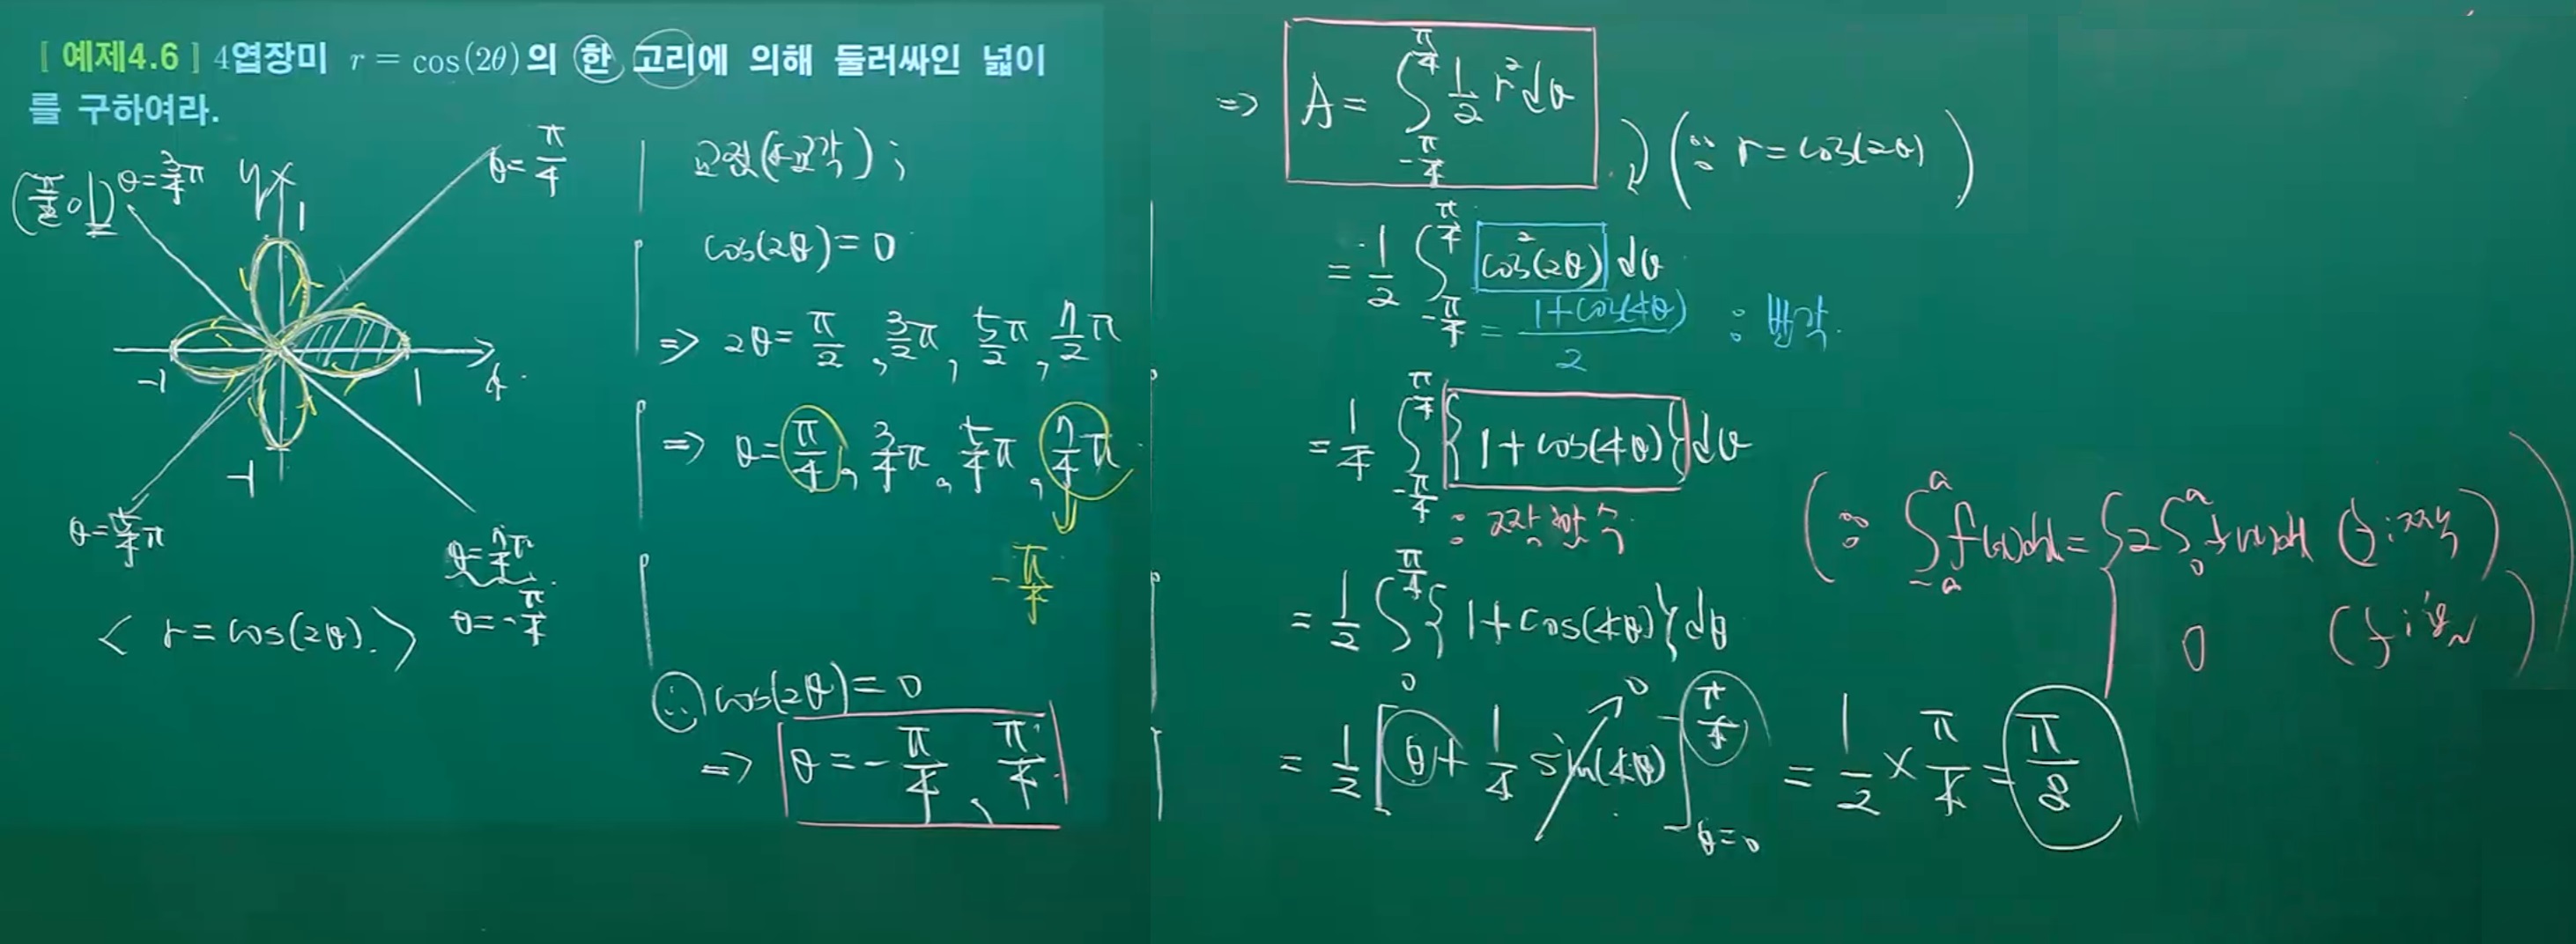 [ 예제4.6 ] 4엽장미 r = cos(2θ)의 한 고리에 의해 둘러싸인 넓이
를 구하여라.
θ = π/4
θ = 3/4 π
1
-1
1
-1
θ = 5/4 π
θ = 7/4 π
θ = -π/4
< r = cos(2θ). >
cos(2θ) = 0
⇒ 2θ = π/2, 3/2 π, 5/2 π, 7/2 π
⇒ θ = π/4, 3/4 π, 5/4 π, 7/4 π
-π/4
∴ cos(2θ) = 0
⇒ θ = -π/4, π/4
⇒ A = ∫_{-π/4}^{π/4} 1/2 r² dθ
(∵ r = cos(2θ))
= 1/2 ∫_{-π/4}^{π/4} cos²(2θ) dθ
= (1+cos(4θ))/2 : 반각.
= 1/4 ∫_{-π/4}^{π/4} {1 + cos(4θ)} dθ
: 짝함수
(∵ ∫_{-a}^{a} f(x)dx = { 2∫_{0}^{a} f(x)dx (f : 짝)
0 (f : 홀)
= 1/2 ∫_{0}^{π/4} {1 + cos(4θ)} dθ
= 1/2 [θ + 1/4 sin(4θ)]_{θ=0}^{π/4} = 1/2 × π/4 = π/8
0